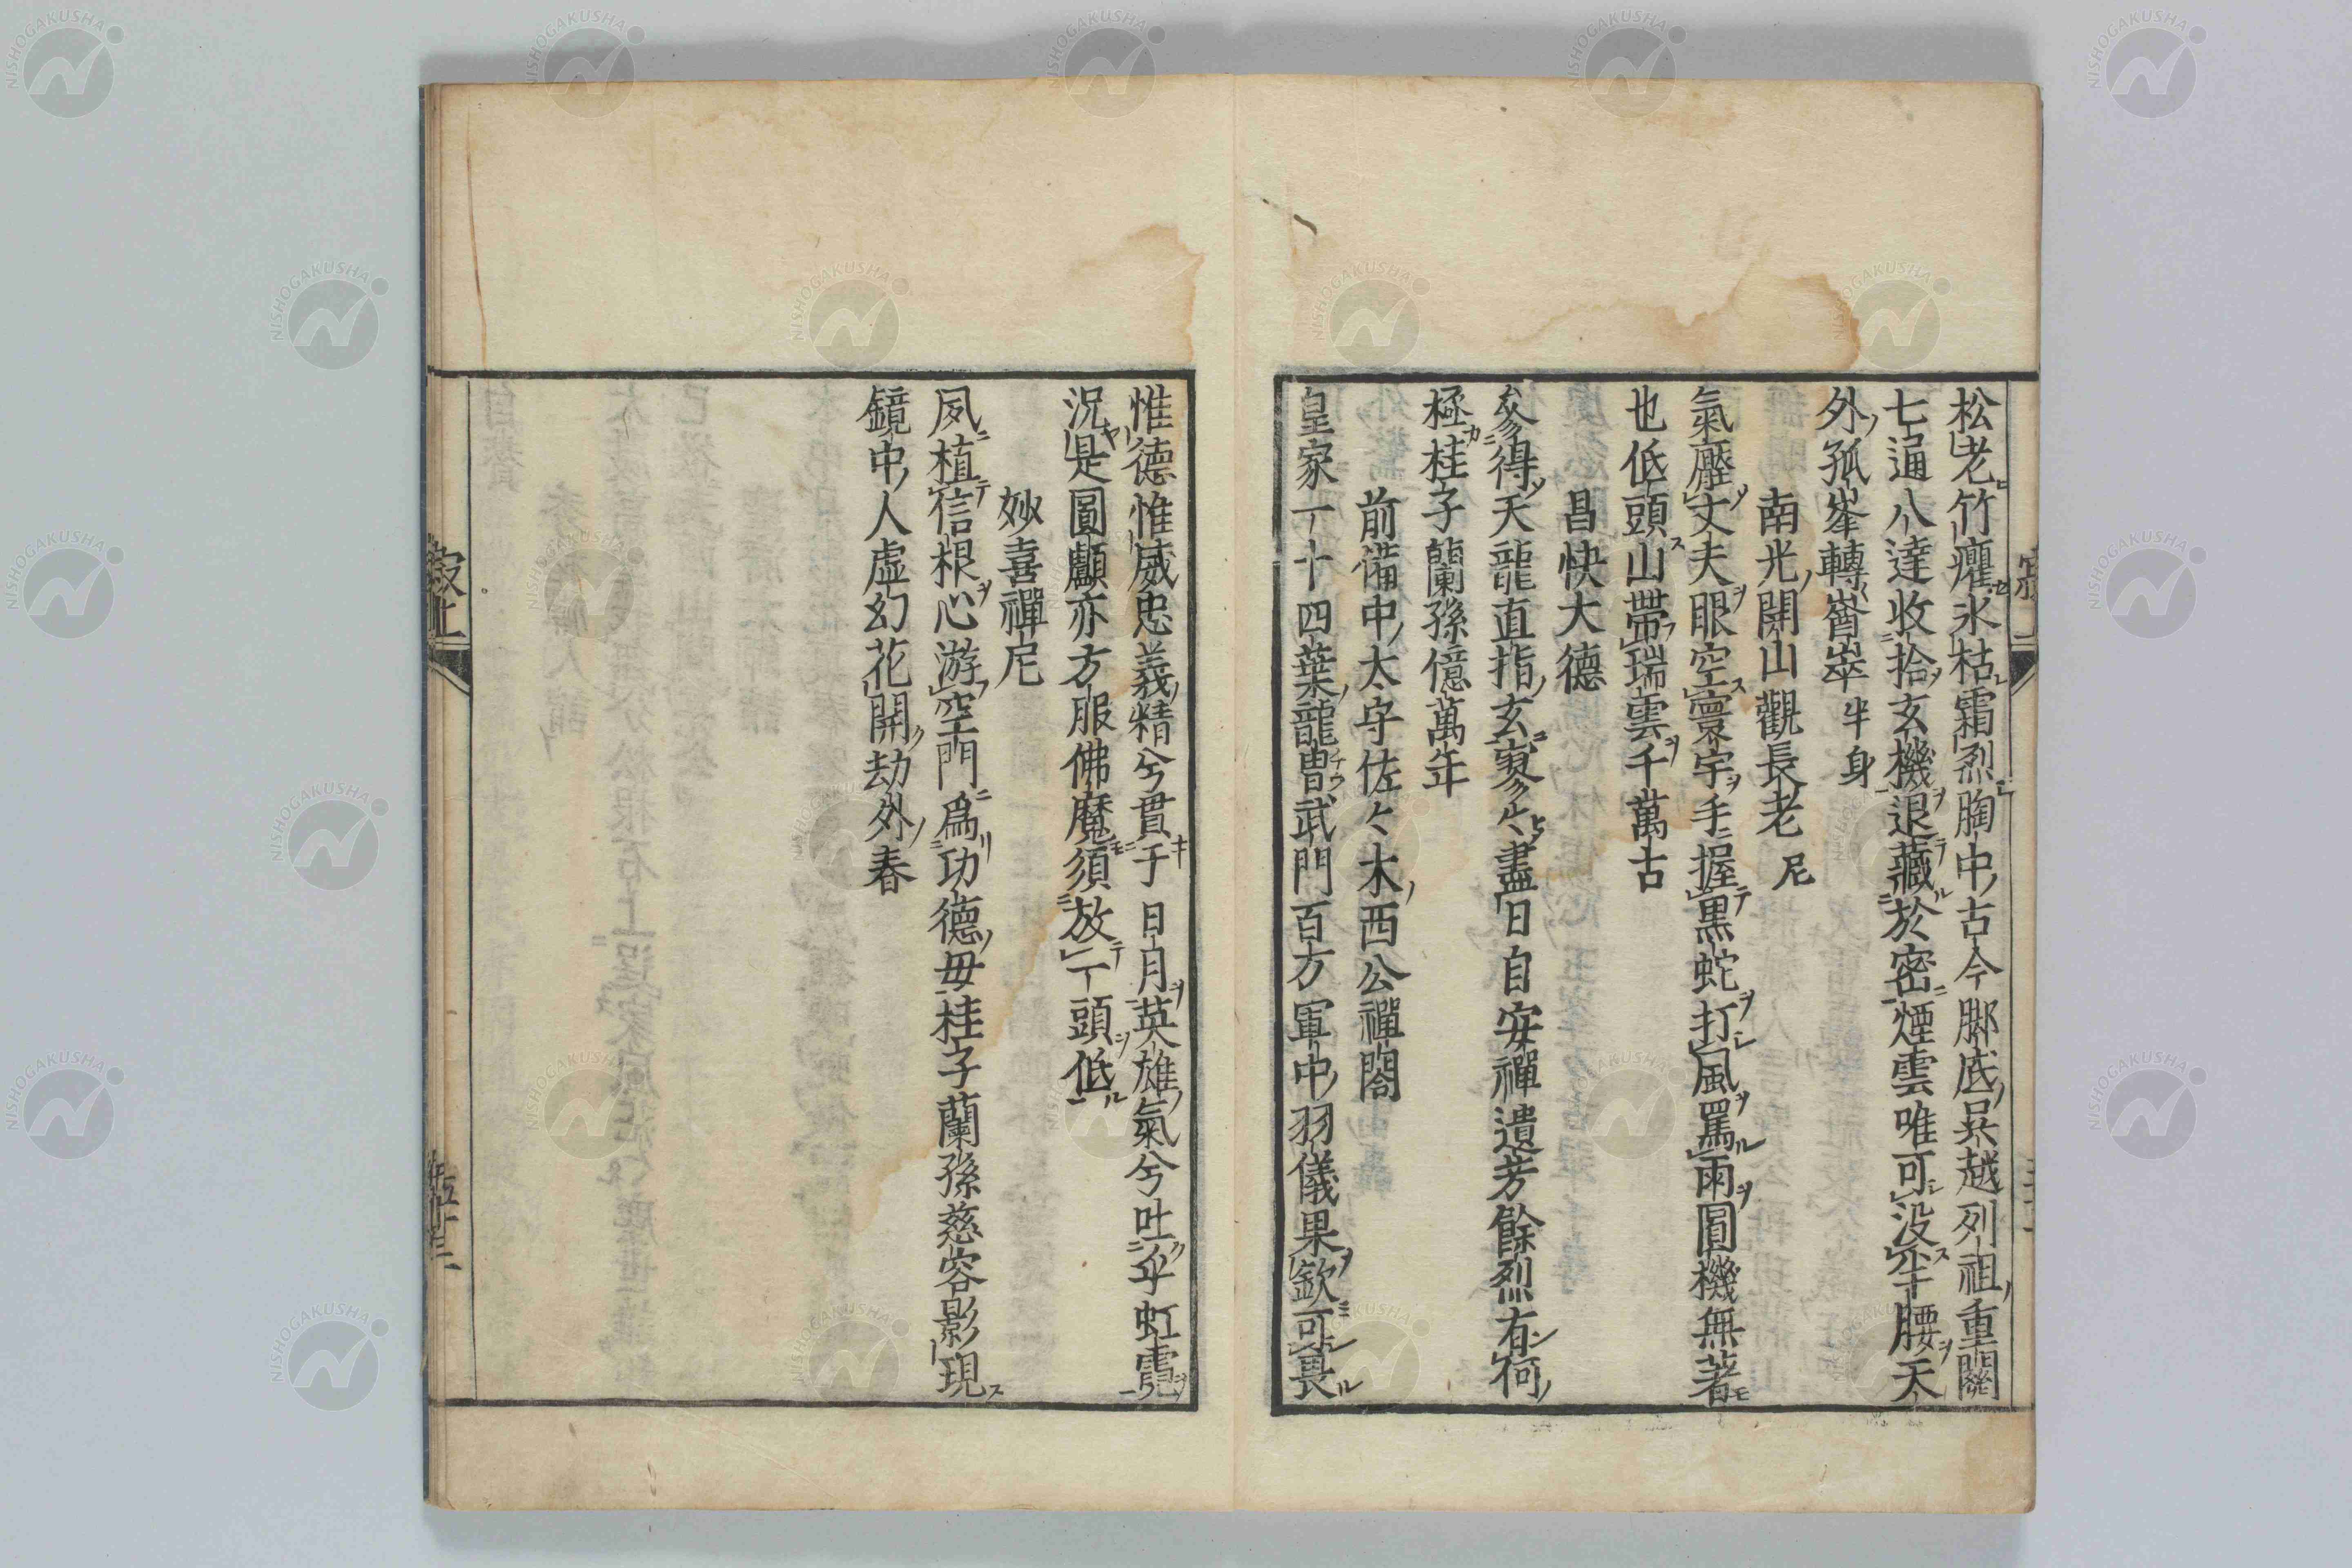 松老竹癯氷枯霜烈胸中古今脚底吳越列祖重關
七通八達收拾玄機退藏於密煙雲唯可没半腰天
外孤峯轉崷崒 半身
南光開山觀長老 尼
氣壓丈夫眼空寰宇手握黑蛇打風罵雨圓機無著
也低頭山帶瑞雲千萬古
昌快大德
參得天龍直指玄寥々盡日自安禪遺芳餘烈有何
極桂子蘭孫億萬年
前備中太守佐々木西公禪閤
皇家一十四葉龍曹武門百方軍中羽儀果欽可畏
惟德惟威忠義精兮貫于日月英雄氣兮吐乎虹霓
況是圓顱亦方服佛魔須放一頭低
妙喜禪尼
夙植信根心游空門爲功德母桂子蘭孫慈容影現
鏡中人虛幻花開劫外春
NISHOGAKUSHA